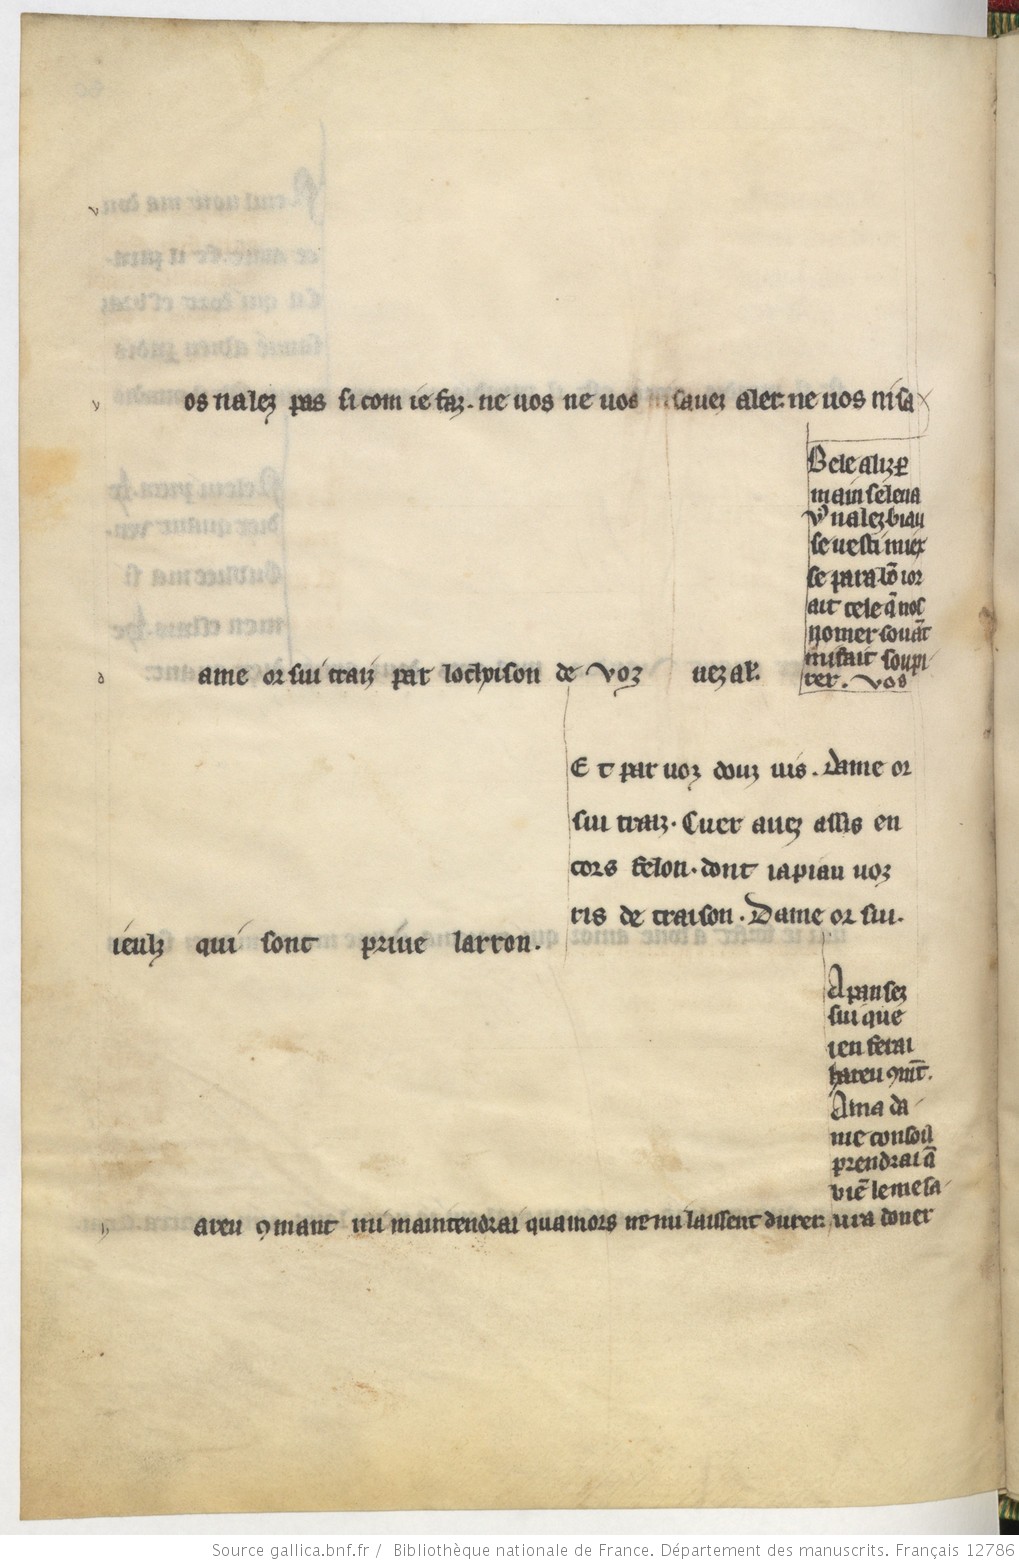 v
v os nalez pas si com ie faz. ne uos ne uos ni sauez aler. ne uos ni sa
Bele aliz p̄
main se leua
v⁹ nalez biau
se uesti miex
se para lō ior
ait cele q̄ nos
nomer souāt
mi fait soupi
rer. vos
uez al'.
d ame or sui traiz par lochoison de voz
E t par uoz douz uis. Dame or
sui traiz. Cuer auez assis en
cors felon. dont iapiau uoz
ris de traison. Dame or sui.
ieulz qui sont priue larron.
A pansez
sui que
ien ferai
hareu ꝯmāt.
A ma da
me consoil
prendrai q̄
biē le me sa
ura doner
h areu ꝯmant mi maintendrai quamors ne mi laissent durer.
Source gallica.bnf.fr / Bibliothèque nationale de France. Département des manuscrits. Français 12786